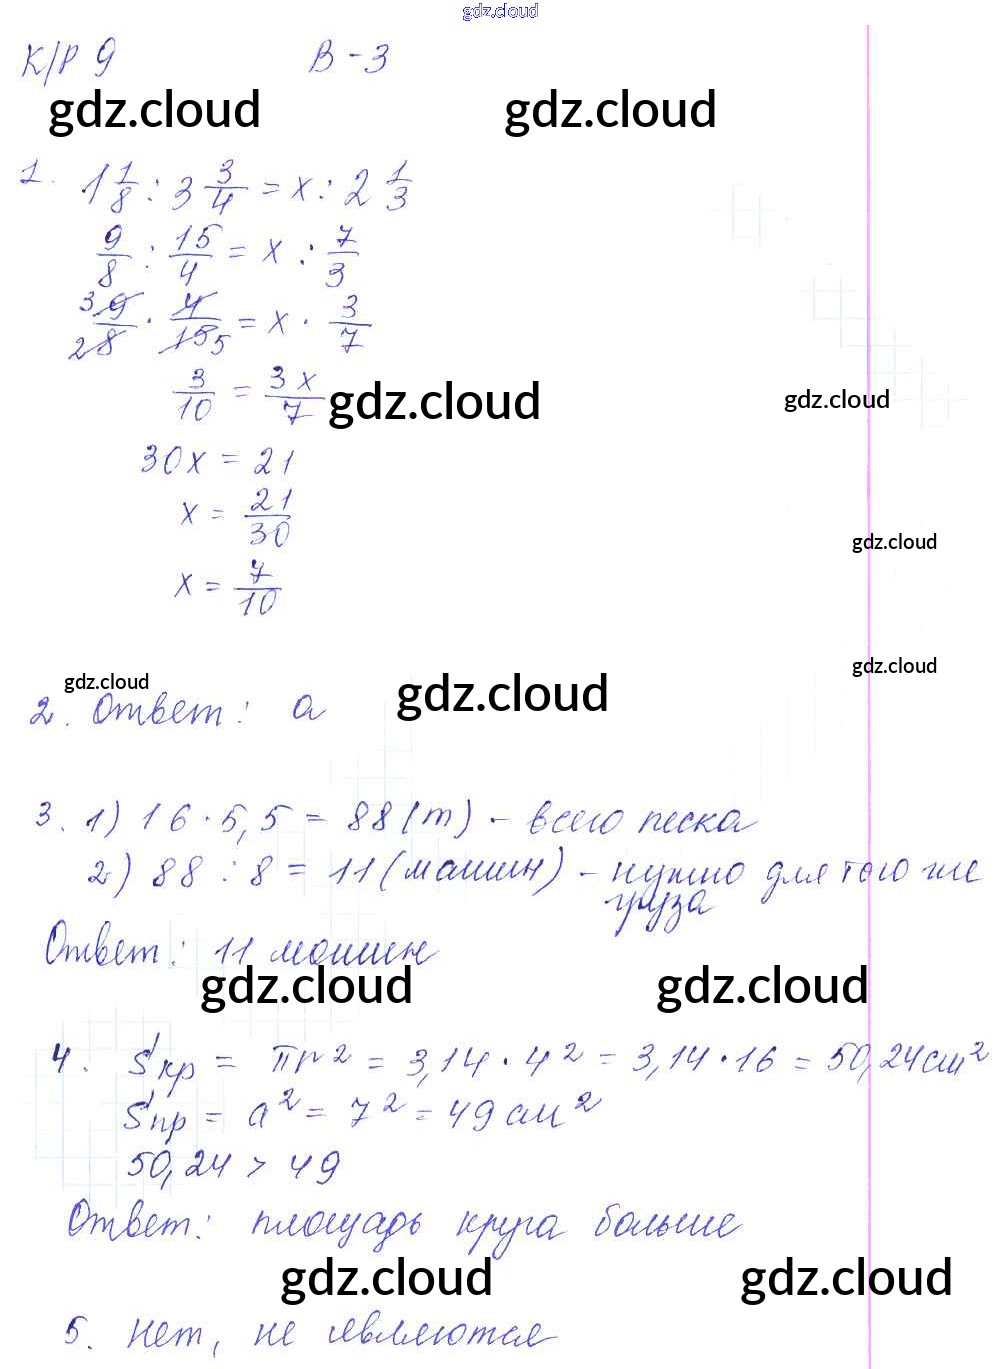 gdz.cloud
К/Р 9 В-3
gdz.cloud gdz.cloud
1. 1 1/8 : 3 3/4 = x : 2 1/3
9/8 : 15/4 = x : 7/3
3 9/8 2 · 4/15 5 = x · 3/7
3/10 = 3x/7
gdz.cloud gdz.cloud
30x = 21
x = 21/30
gdz.cloud
x = 7/10
gdz.cloud
gdz.cloud gdz.cloud
2. Ответ: а
3. 1) 16 · 5,5 = 88 (т) - всего песка
2) 88 : 8 = 11 (машин) - нужно для того же
груза
Ответ: 11 машин
gdz.cloud gdz.cloud
4. Sкр = πr² = 3,14 · 4² = 3,14 · 16 = 50,24 см²
Sпр = a² = 7² = 49 см²
50,24 > 49
Ответ: площадь круга больше
gdz.cloud gdz.cloud
5. Нет, не являются